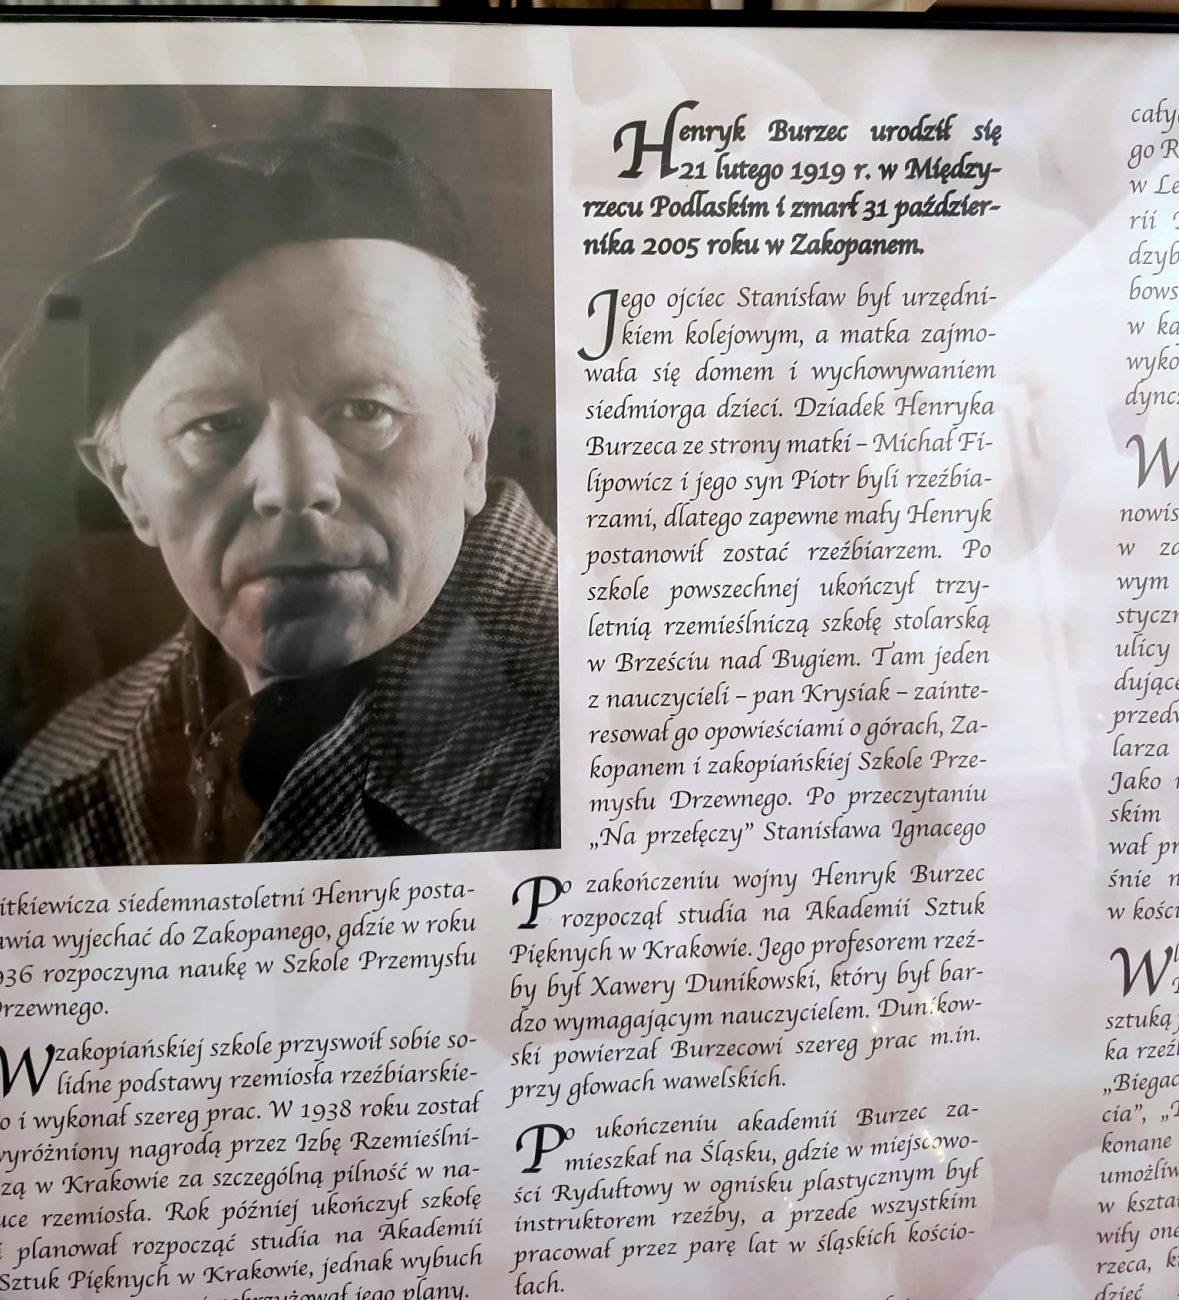 Henryk Burzec urodził się
21 lutego 1919 r. w Między-
rzecu Podlaskim i zmarł 31 paździer-
nika 2005 roku w Zakopanem.
Jego ojciec Stanisław był urzędni-
kiem kolejowym, a matka zajmo-
wała się domem i wychowywaniem
siedmiorga dzieci. Dziadek Henryka
Burzeca ze strony matki – Michał Fi-
lipowicz i jego syn Piotr byli rzeźbia-
rzami, dlatego zapewne mały Henryk
postanowił zostać rzeźbiarzem. Po
szkole powszechnej ukończył trzy-
letnią rzemieślniczą szkołę stolarską
w Brześciu nad Bugiem. Tam jeden
z nauczycieli – pan Krysiak – zainte-
resował go opowieściami o górach, Za-
kopanem i zakopiańskiej Szkole Prze-
mysłu Drzewnego. Po przeczytaniu
„Na przełęczy” Stanisława Ignacego
itkiewicza siedemnastoletni Henryk posta-
awia wyjechać do Zakopanego, gdzie w roku
936 rozpoczyna naukę w Szkole Przemysłu
rzewnego.
W zakopiańskiej szkole przyswoił sobie so-
lidne podstawy rzemiosła rzeźbiarskie-
o i wykonał szereg prac. W 1938 roku został
wyróżniony nagrodą przez Izbę Rzemieślni-
zą w Krakowie za szczególną pilność w na-
uce rzemiosła. Rok później ukończył szkołę
i planował rozpocząć studia na Akademii
Sztuk Pięknych w Krakowie, jednak wybuch
jego plany.
Po zakończeniu wojny Henryk Burzec
rozpoczął studia na Akademii Sztuk
Pięknych w Krakowie. Jego profesorem rzeź-
by był Xawery Dunikowski, który był bar-
dzo wymagającym nauczycielem. Dunikow-
ski powierzał Burzecowi szereg prac m.in.
przy głowach wawelskich.
Po ukończeniu akademii Burzec za-
mieszkał na Śląsku, gdzie w miejscowo-
ści Rydułtowy w ognisku plastycznym był
instruktorem rzeźby, a przede wszystkim
pracował przez parę lat w śląskich kościo-
łach.
cały
go R
w Le
rii
dzyb
bows
w ka
wyko
dyncz
W
nowis
w za
wym
styczn
ulicy
dujące
przedw
larza
Jako
skim
wał pr
śnie n
w kości
Wł
sztuką
ka rzeź
„Biegac
cia”, „
konane
umożliw
w kszta
wiły one
rzeca, k
dzieć